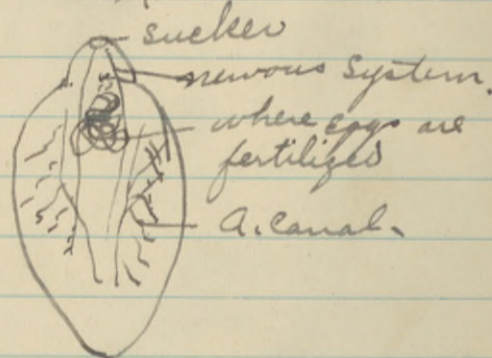 sucker
nervous System.
where eggs are
fertilized
A. Canal.